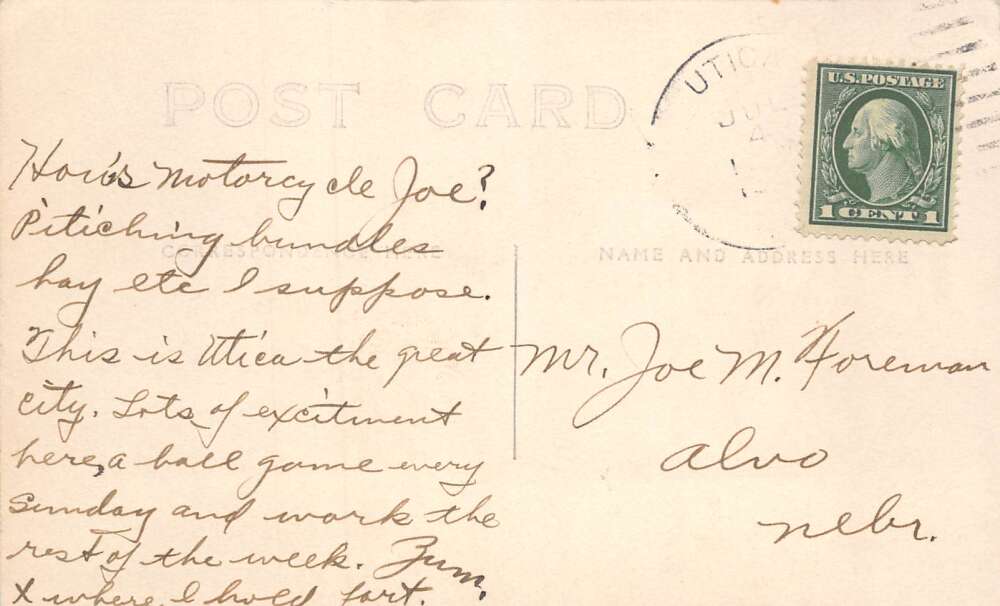 POST CARD
UTICA
U.S. POSTAGE
1 CENT 1
CORRESPONDENCE HERE
NAME AND ADDRESS HERE
How's Motorcycle Joe?
Pitiching bundles
hay etc I suppose.
This is Utica the great
city. Lots of excitment
here, a ball game every
Sunday and work the
rest of the week. Zum.
X where I hold fort.
Mr. Joe M. Foreman
Alvo
Nebr.